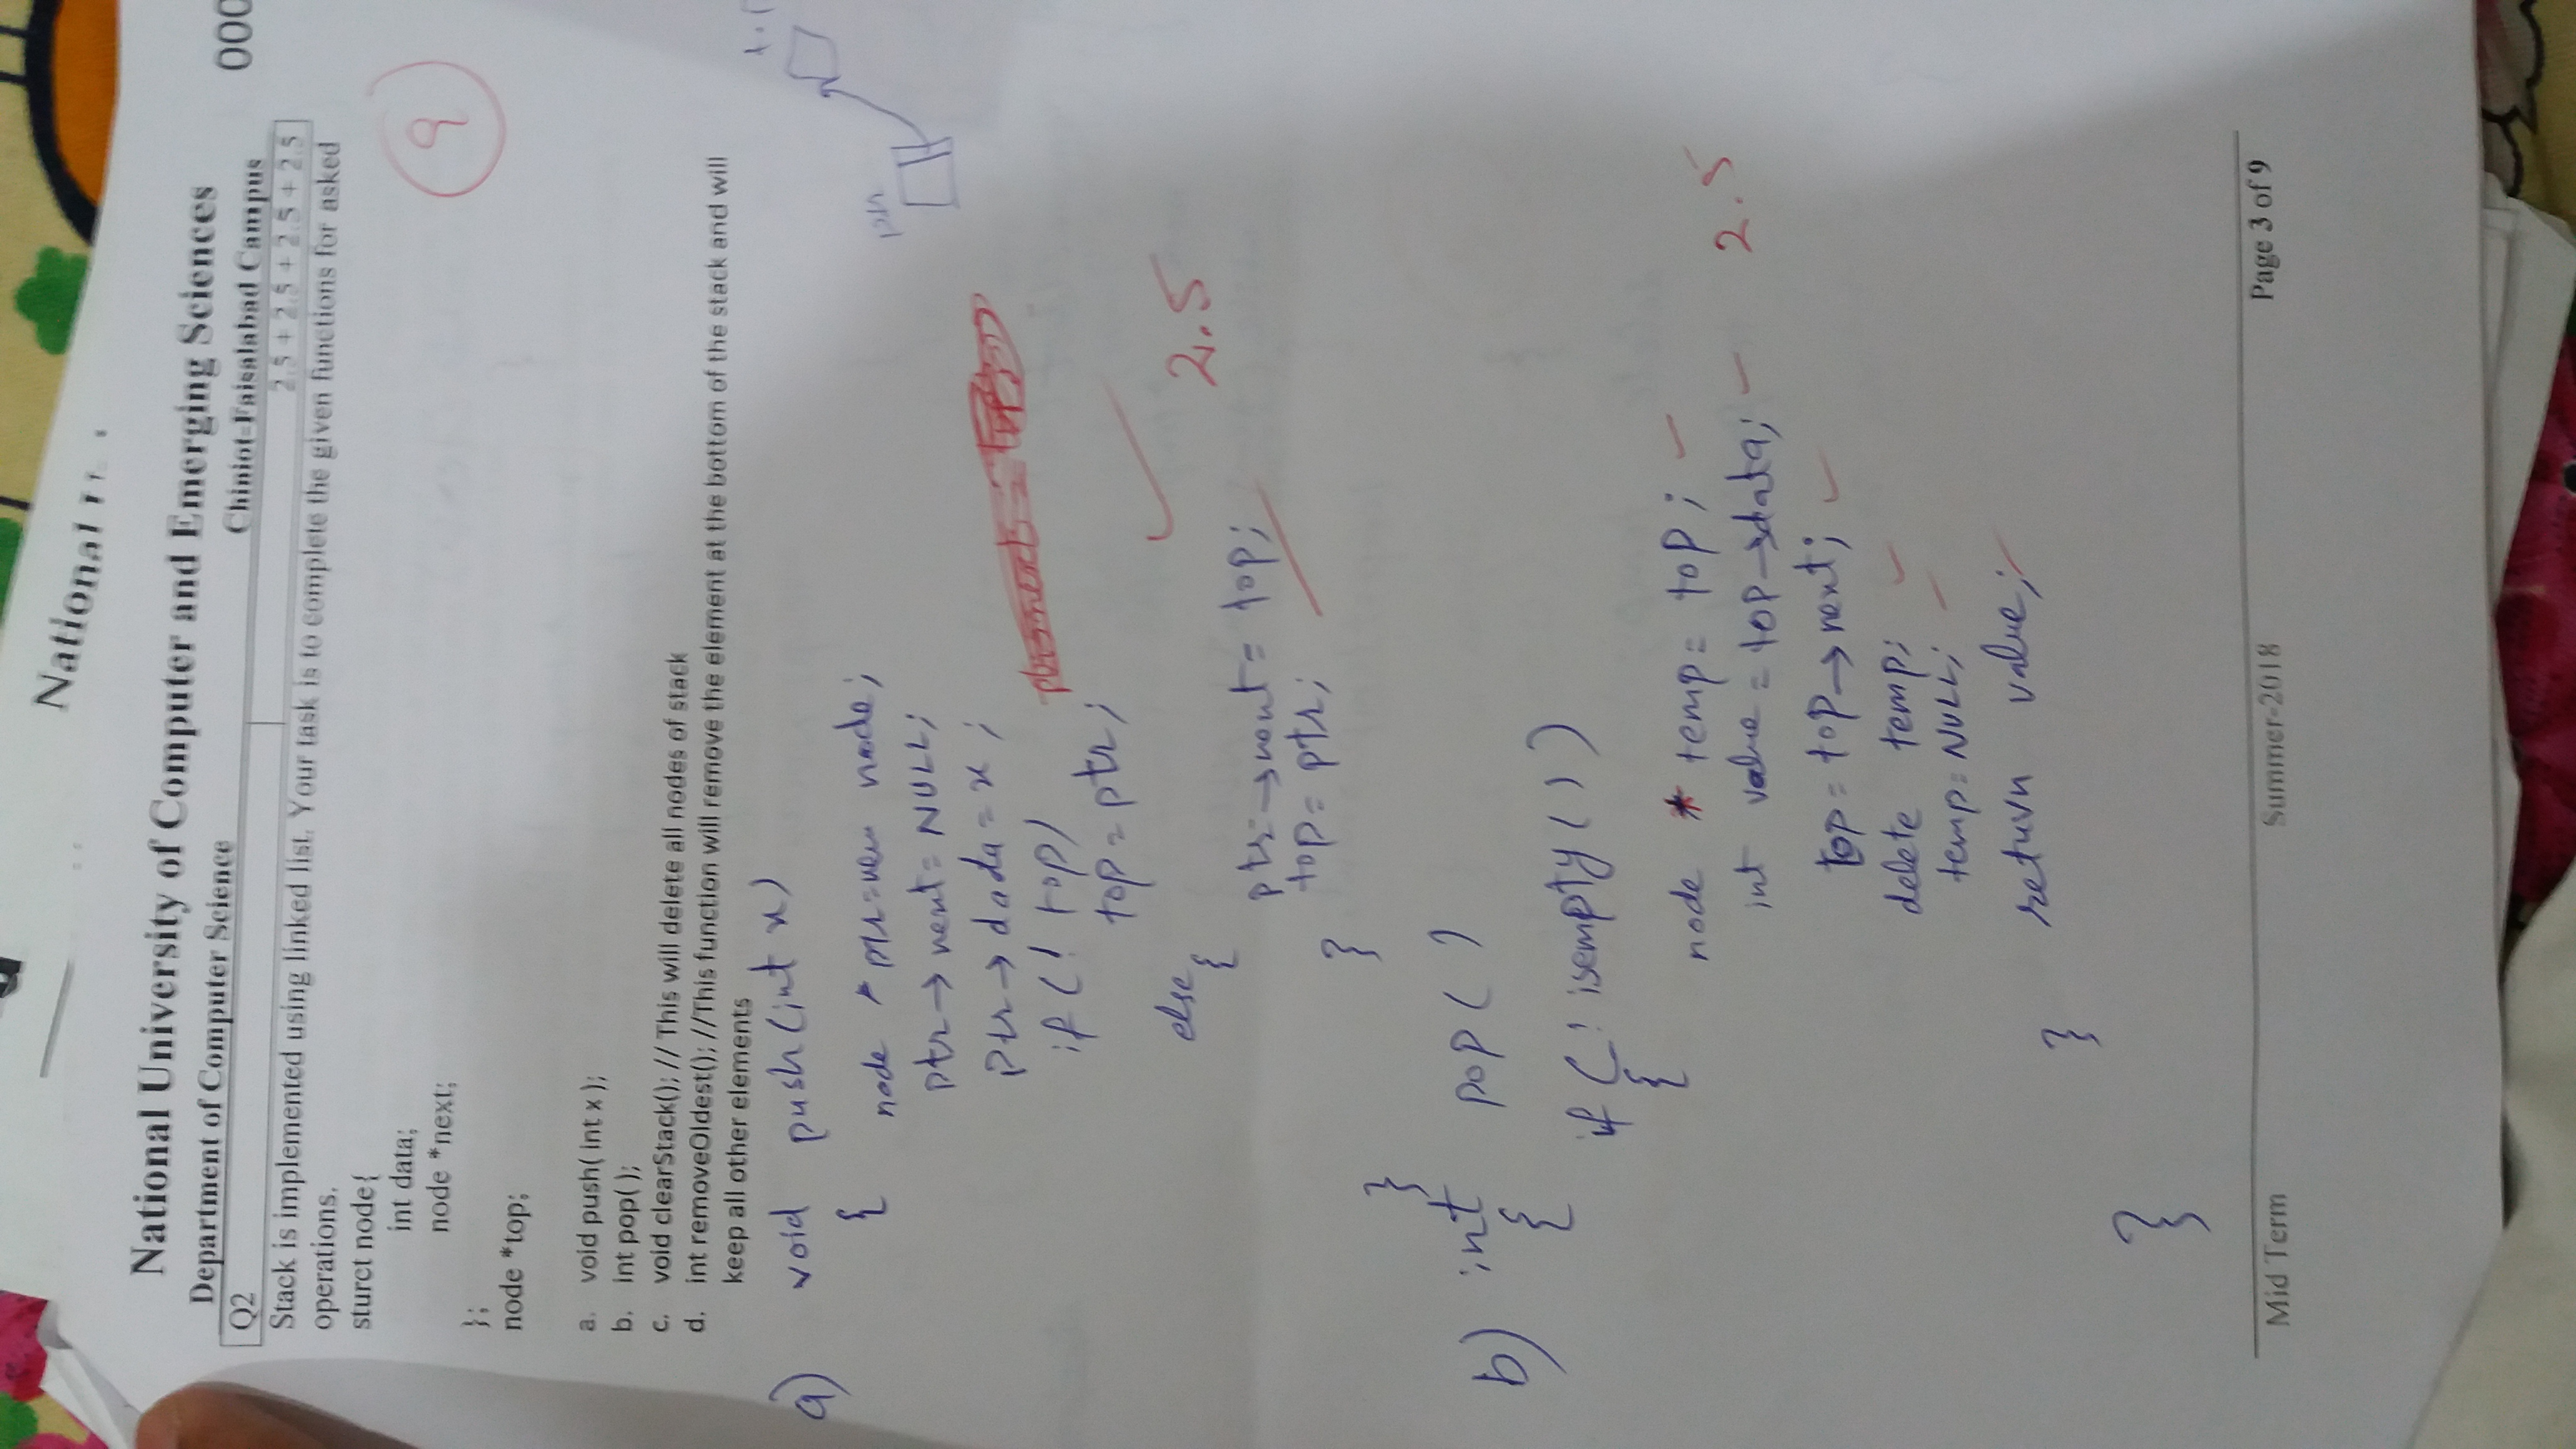 National
National University of Computer and Emerging Sciences
Department of Computer Science
Chiniot-Faisalabad Campus
000
Q2
2.5 + 2.5 + 2.5 + 2.5
Stack is implemented using linked list. Your task is to complete the given functions for asked
operations.
sturct node{
int data;
node *next;
};
node *top;
9
a. void push( int x );
b. int pop( );
c. void clearStack(); // This will delete all nodes of stack
d. int removeOldest(); //This function will remove the element at the bottom of the stack and will
keep all other elements
a) void push(int x)
{
node * ptr=new node;
ptr → next = NULL;
ptr → dada = x ;
if (! top)
top = ptr;
else
{
2.5
ptr → next = top;
top = ptr;
}
}
ptr
b) int pop( )
{
if (! isempty ( ) )
{
node * temp = top ;
int value = top → data;
2.5
top = top → next;
delete temp;
temp = NULL;
return value;
}
}
Mid Term
Summer-2018
Page 3 of 9